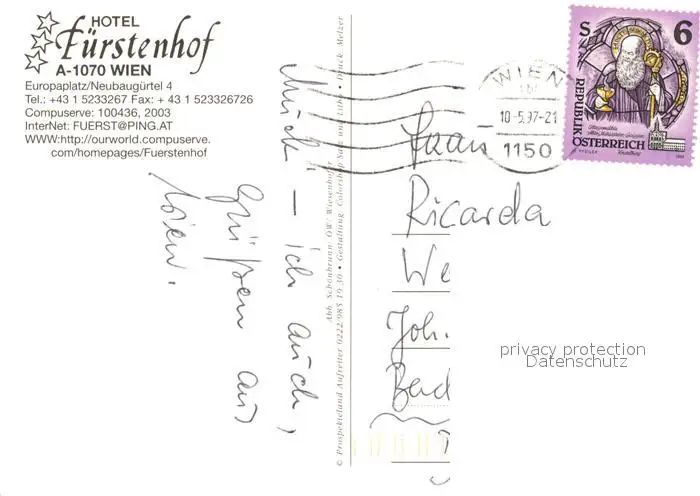 HOTEL
Fürstenhof
A-1070 WIEN
Europaplatz/Neubaugürtel 4
Tel.: +43 1 5233267 Fax: + 43 1 523326726
Compuserve: 100436, 2003
InterNet: FUERST@PING.AT
WWW:http://ourworld.compuserve.
com/homepages/Fuerstenhof
– ich auch,
Grüßen aus
Wien.
Abb. Schönbrunn: ÖW/ Wiesenhofer
© Prospekteland Aufreiter 0222/985 19 30 • Gestaltung, Colorshop Satz und Litho • Druck: Melzer
WIEN
10-5.97-21
1150
S 6
REPUBLIK
ÖSTERREICH
Frau
Ricarda
We
Joh.
Bad
privacy protection
Datenschutz